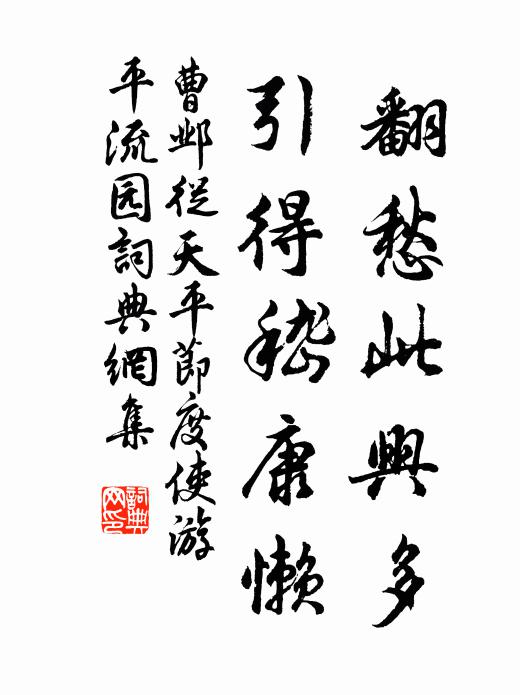 翻愁此興多
引得嵇康懶
曹邺從天平節度使游
平流园詞典網集
詞典
网印